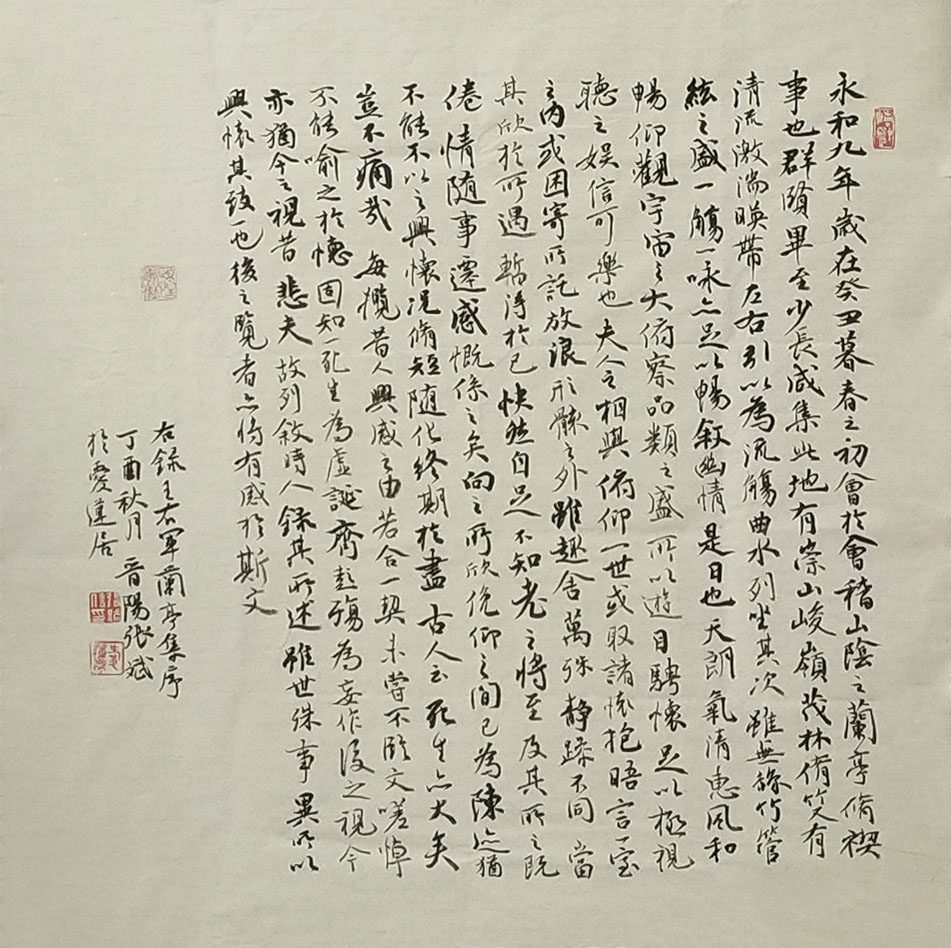 永和九年歲在癸丑暮春之初會於會稽山陰之蘭亭脩禊
事也群賢畢至少長咸集此地有崇山峻嶺茂林脩竹又有
清流激湍暎帶左右引以為流觴曲水列坐其次雖無絲竹管
絃之盛一觴一詠亦足以暢敘幽情是日也天朗氣清惠風和
暢仰觀宇宙之大俯察品類之盛所以遊目騁懷足以極視
聽之娛信可樂也夫人之相與俯仰一世或取諸懷抱晤言一室
之內或因寄所託放浪形骸之外雖趣舍萬殊靜躁不同當
其欣於所遇暫得於己快然自足不知老之將至及其所之既
倦情隨事遷感慨係之矣向之所欣俛仰之間已為陳迹猶
不能不以之興懷況脩短隨化終期於盡古人云死生亦大矣
豈不痛哉每攬昔人興感之由若合一契未嘗不臨文嗟悼
不能喻之於懷固知一死生為虛誕齊彭殤為妄作後之視今
亦猶今之視昔悲夫故列敘時人錄其所述雖世殊事異所以
興懷其致一也後之覽者亦將有感於斯文
右錄王右軍蘭亭集序
丁酉秋月晉陽張斌
於愛蓮居